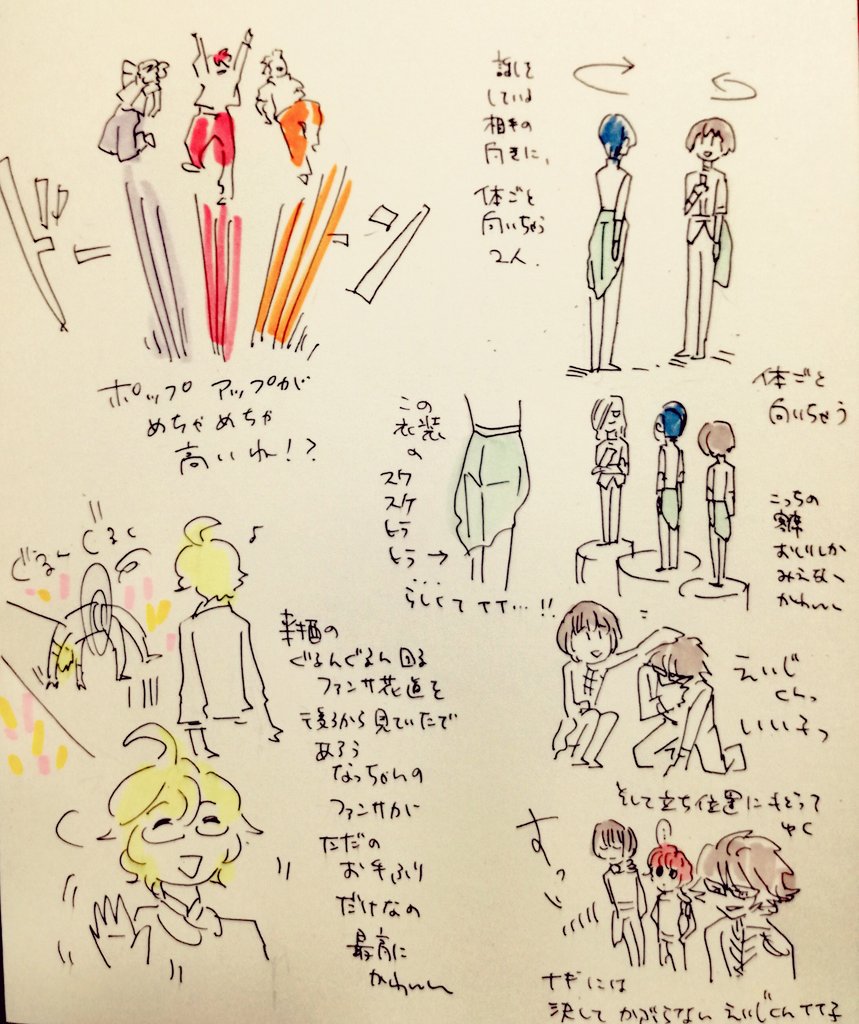 ドーン
ポップアップが
めちゃめちゃ
高いわ!?
話しを
している
相手の
向きに、
体ごと
向いちゃう
2人.
体ごと
向いちゃう
この
衣装
の
スケ
スケ
ヒラ
ヒラ→
…
らしくて イイ…!!
こっちの
おしりしか
みえない
かわいい
ぐるん
ぐるん
♪
ぐるんぐるん回る
ファンサ花道を
後ろから見ていたで
あろう
なっちゃんの
ファンサが
ただの
お手ふり
だけなの
最高に
かわいい
えいじ
くんっ
いい子っ
そして立ち位置にもどって
ゆく
すっ
ナギには
決して かぶらない えいじくんイイ子